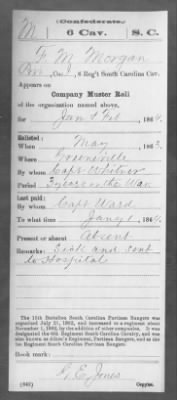 M
(Confederate.)
6 Cav. S. C.
F M Morgan
Co. , 6 Reg't South Carolina Cav.
Appears on
Company Muster Roll
of the organization named above,
for Jan & Feb , 1864.
Enlisted:
When May , 1863.
Where Greenville
By whom Capt Whitner
Period 3 years or the War
Last paid:
By whom Capt Ward
To what time Jany 1 , 1864.
Present or absent Absent
Remarks: Sick and sent
to Hospital
The 16th Battalion South Carolina Partisan Rangers was
organized July 21, 1862, and increased to a regiment about
November 1, 1862, by the addition of other companies. It was
designated the 6th Regiment South Carolina Cavalry, and was
also known as Aiken's Regiment, Partisan Rangers, and as the
1st Regiment South Carolina Partisan Rangers.
Book mark:
G. E. Jones
(642) Copyist.